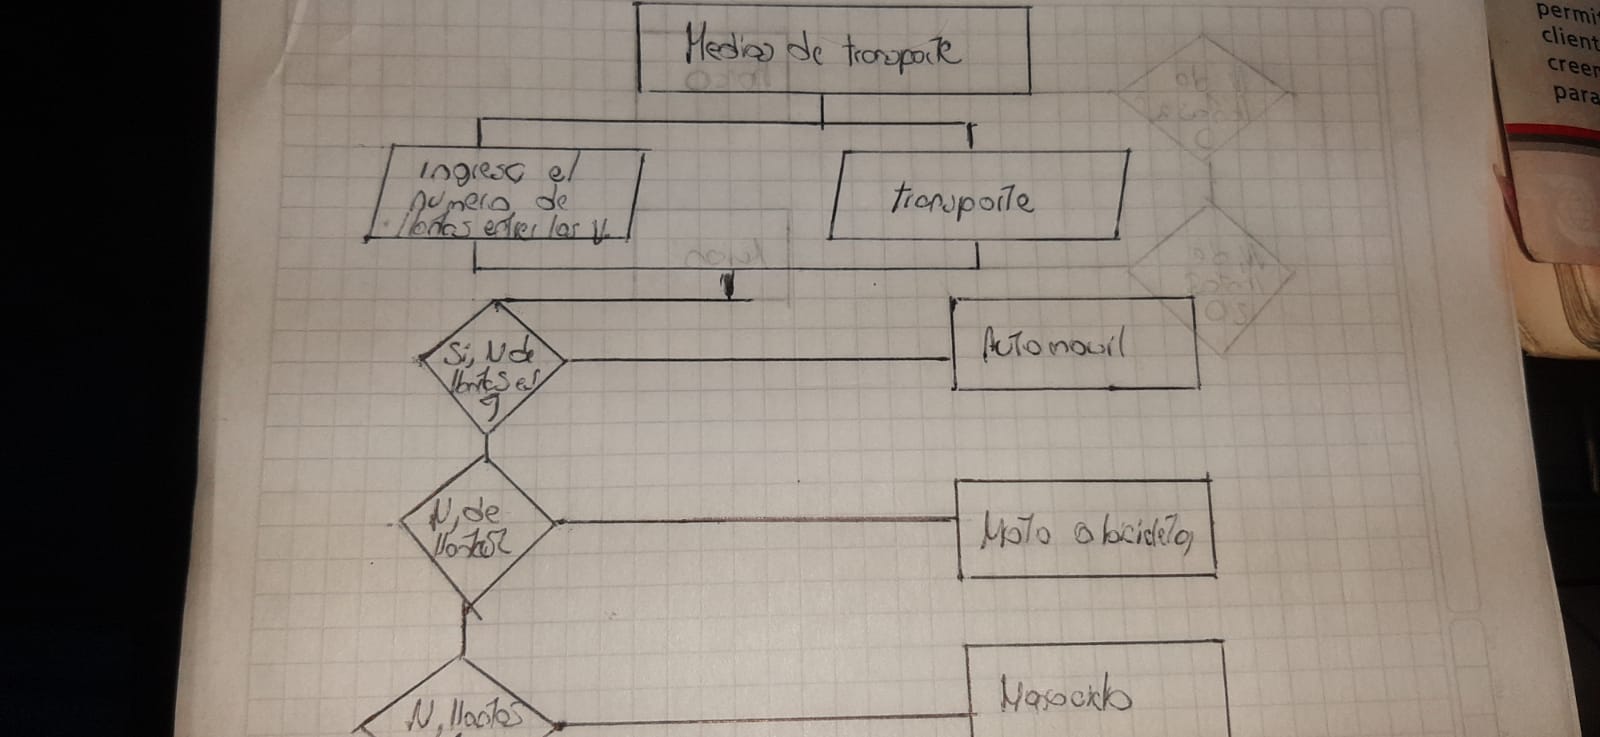 Medios de transporte
Ingresa el
numero de
llantas entre las V.
transporte
Si, N de
llantas es
Automovil
N, de
llantas
Moto o bicicleta,
N, llantas
permi
client
creer
para